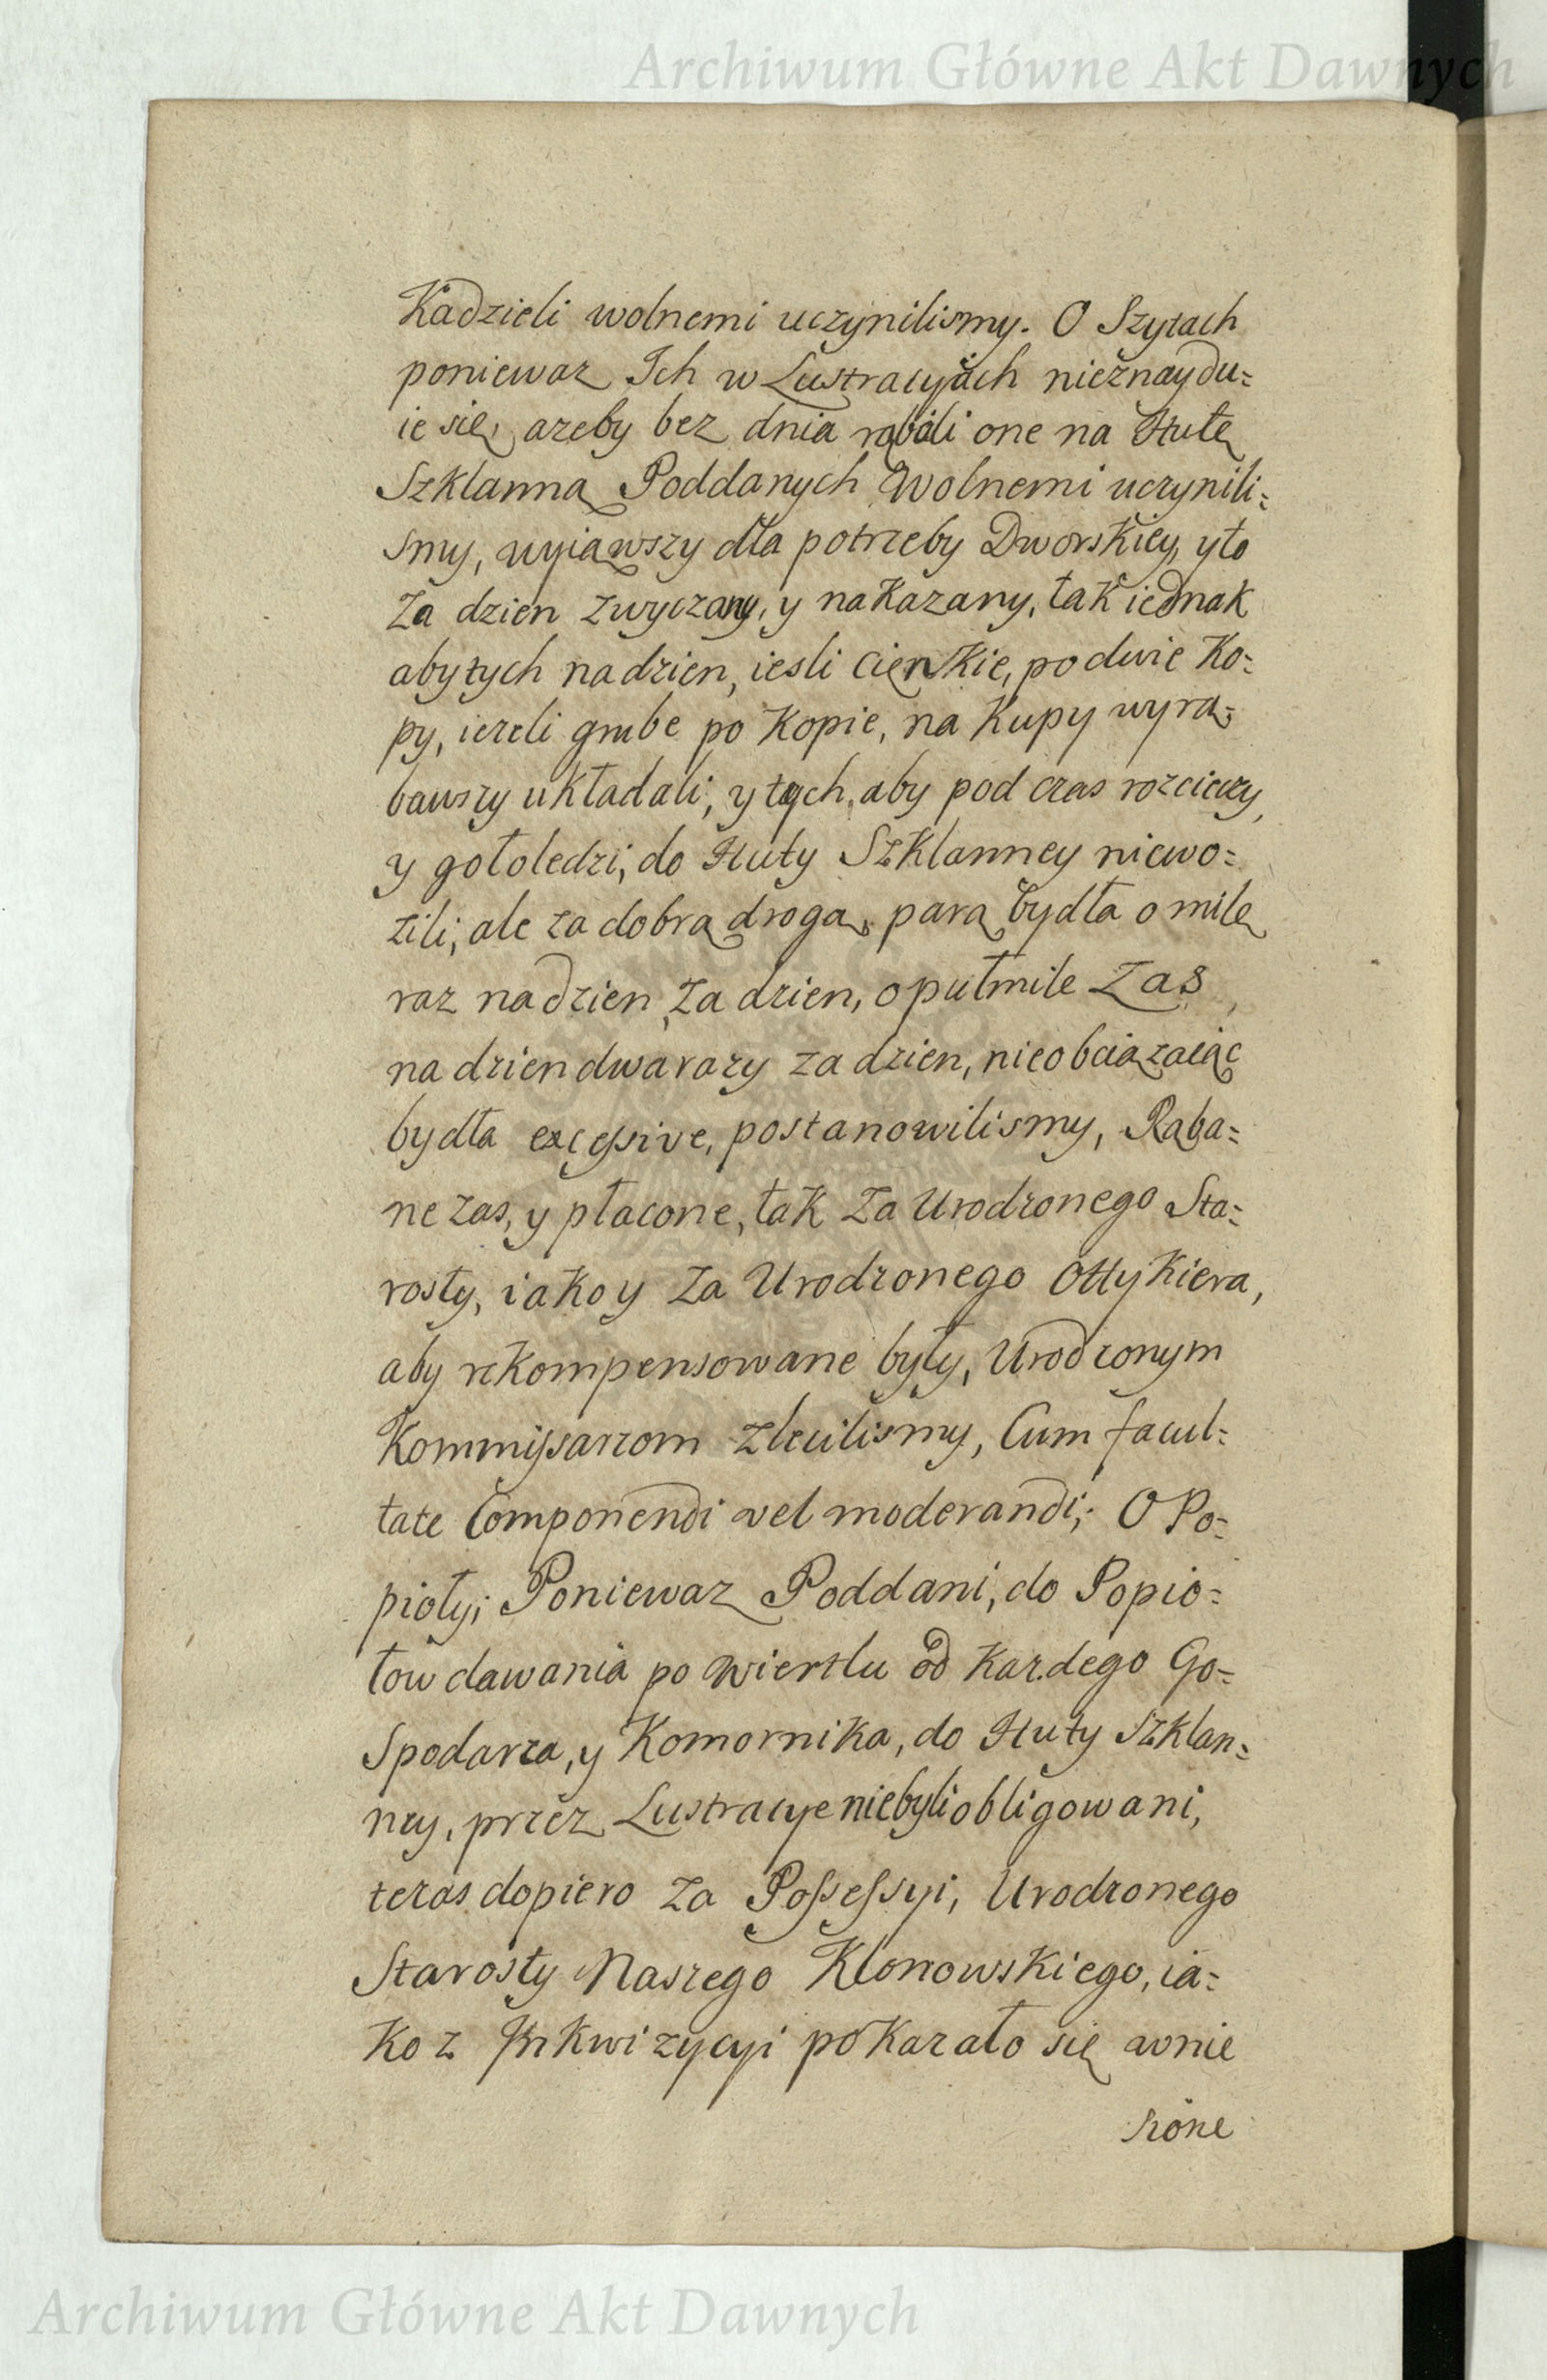 Archiwum Główne Akt Dawnych
Kadzieli wolnemi uczynilismy. O Szytach
poniewaz Ich w Lustracyjach nieznaydu=
ie się, azeby bez dnia rąbali one na Hutę
Szklanną Poddanych Wolnemi uczynili=
smy, wyiąwszy dla potrzeby Dworskiey, y to
Za dzien zwyczany, y nakazany, tak iednak
aby tych na dzien, iesli cienkie, po dwie Ko=
py, iezeli grube po Kopie, na Kupy wyrą=
bawszy układali, y tych, aby pod czas rozcieczy,
y gołoledzi, do Huty Szklanney niewo=
zili, ale za dobrą drogą, parą bydła o milę
raz na dzien, za dzien, o pułmile Zas
na dzien dwa razy za dzien, nieobciązaiąc
bydła excessive, postanowilismy, Rąba=
ne zas, y płacone, tak za Urodzonego Sta=
rosty, iako y za Urodzonego Ottykiera,
aby rekompensowane były, Urodzonym
Kommissarzom zlecilismy, Cum facul=
tate Componendi vel moderandi; O Po=
pioły; Poniewaz Poddani, do Popio=
łow dawania po wiertlu od Kazdego Go=
Spodarza, y Komornika, do Huty Szklan=
ney, przez Lustracye niebyli obligowani,
teras dopiero za Possessyi, Urodzonego
Starosty Naszego Klonowskiego, ia=
Ko z Inkwizycyi pokazało się wnie
sione
Archiwum Główne Akt Dawnych